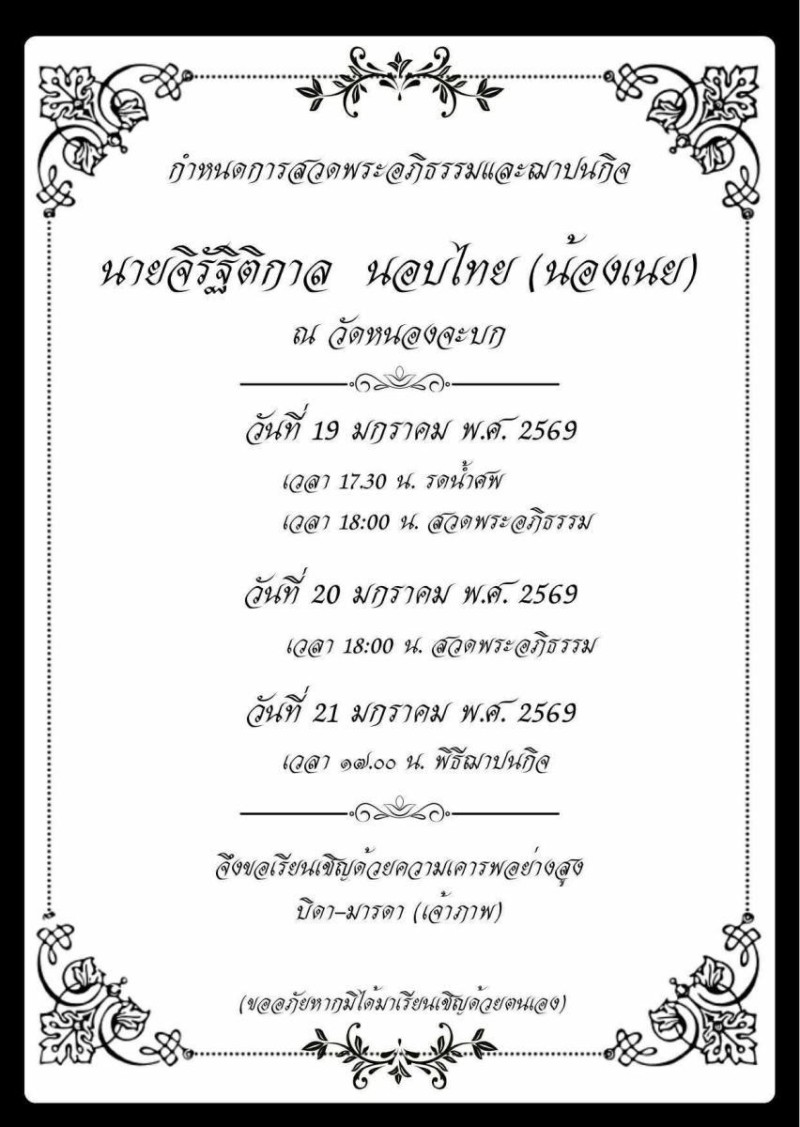 กำหนดการสวดพระอภิธรรมและฌาปนกิจ
นายจิรัฐิติกาล นอบไทย (น้องเนย)
ณ วัดหนองจะบก
วันที่ 19 มกราคม พ.ศ. 2569
เวลา 17.30 น. รดน้ำศพ
เวลา 18:00 น. สวดพระอภิธรรม
วันที่ 20 มกราคม พ.ศ. 2569
เวลา 18:00 น. สวดพระอภิธรรม
วันที่ 21 มกราคม พ.ศ. 2569
เวลา ๑๗.๐๐ น. พิธีฌาปนกิจ
จึงขอเรียนเชิญด้วยความเคารพอย่างสูง
บิดา-มารดา (เจ้าภาพ)
(ขออภัยหากมิได้มาเรียนเชิญด้วยตนเอง)